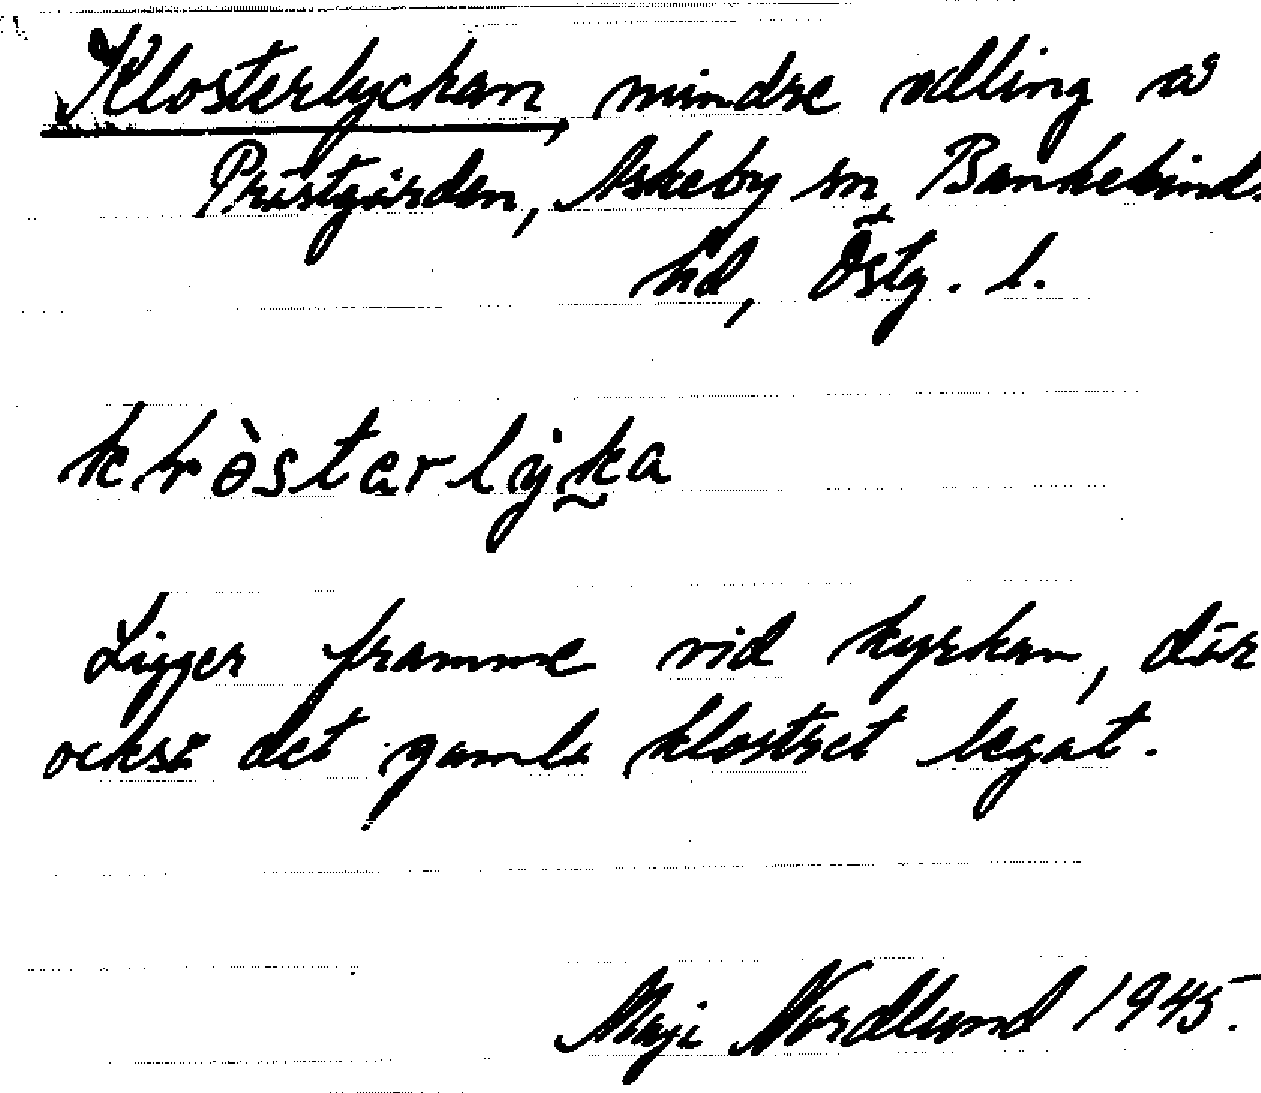 Klosterlyckan, mindre odling av
Prästgården, Askeby sn, Bankekinds
hd, Östg. l.
klòstərlyka
Ligger framme vid kyrkan, där
också det gamla klostret legat.
Maji Nordlund 1945.